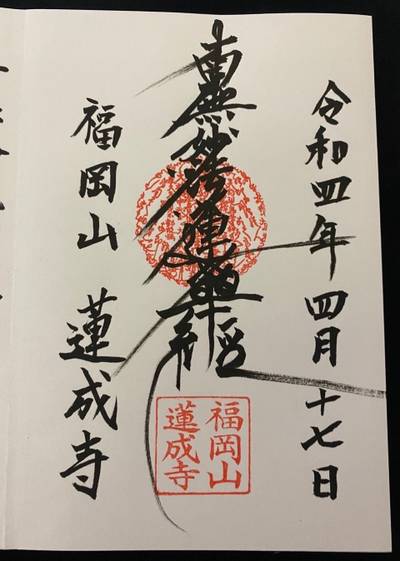 令和四年四月十七日
南無妙法蓮華経
福岡山 蓮成寺
福岡山
蓮成寺